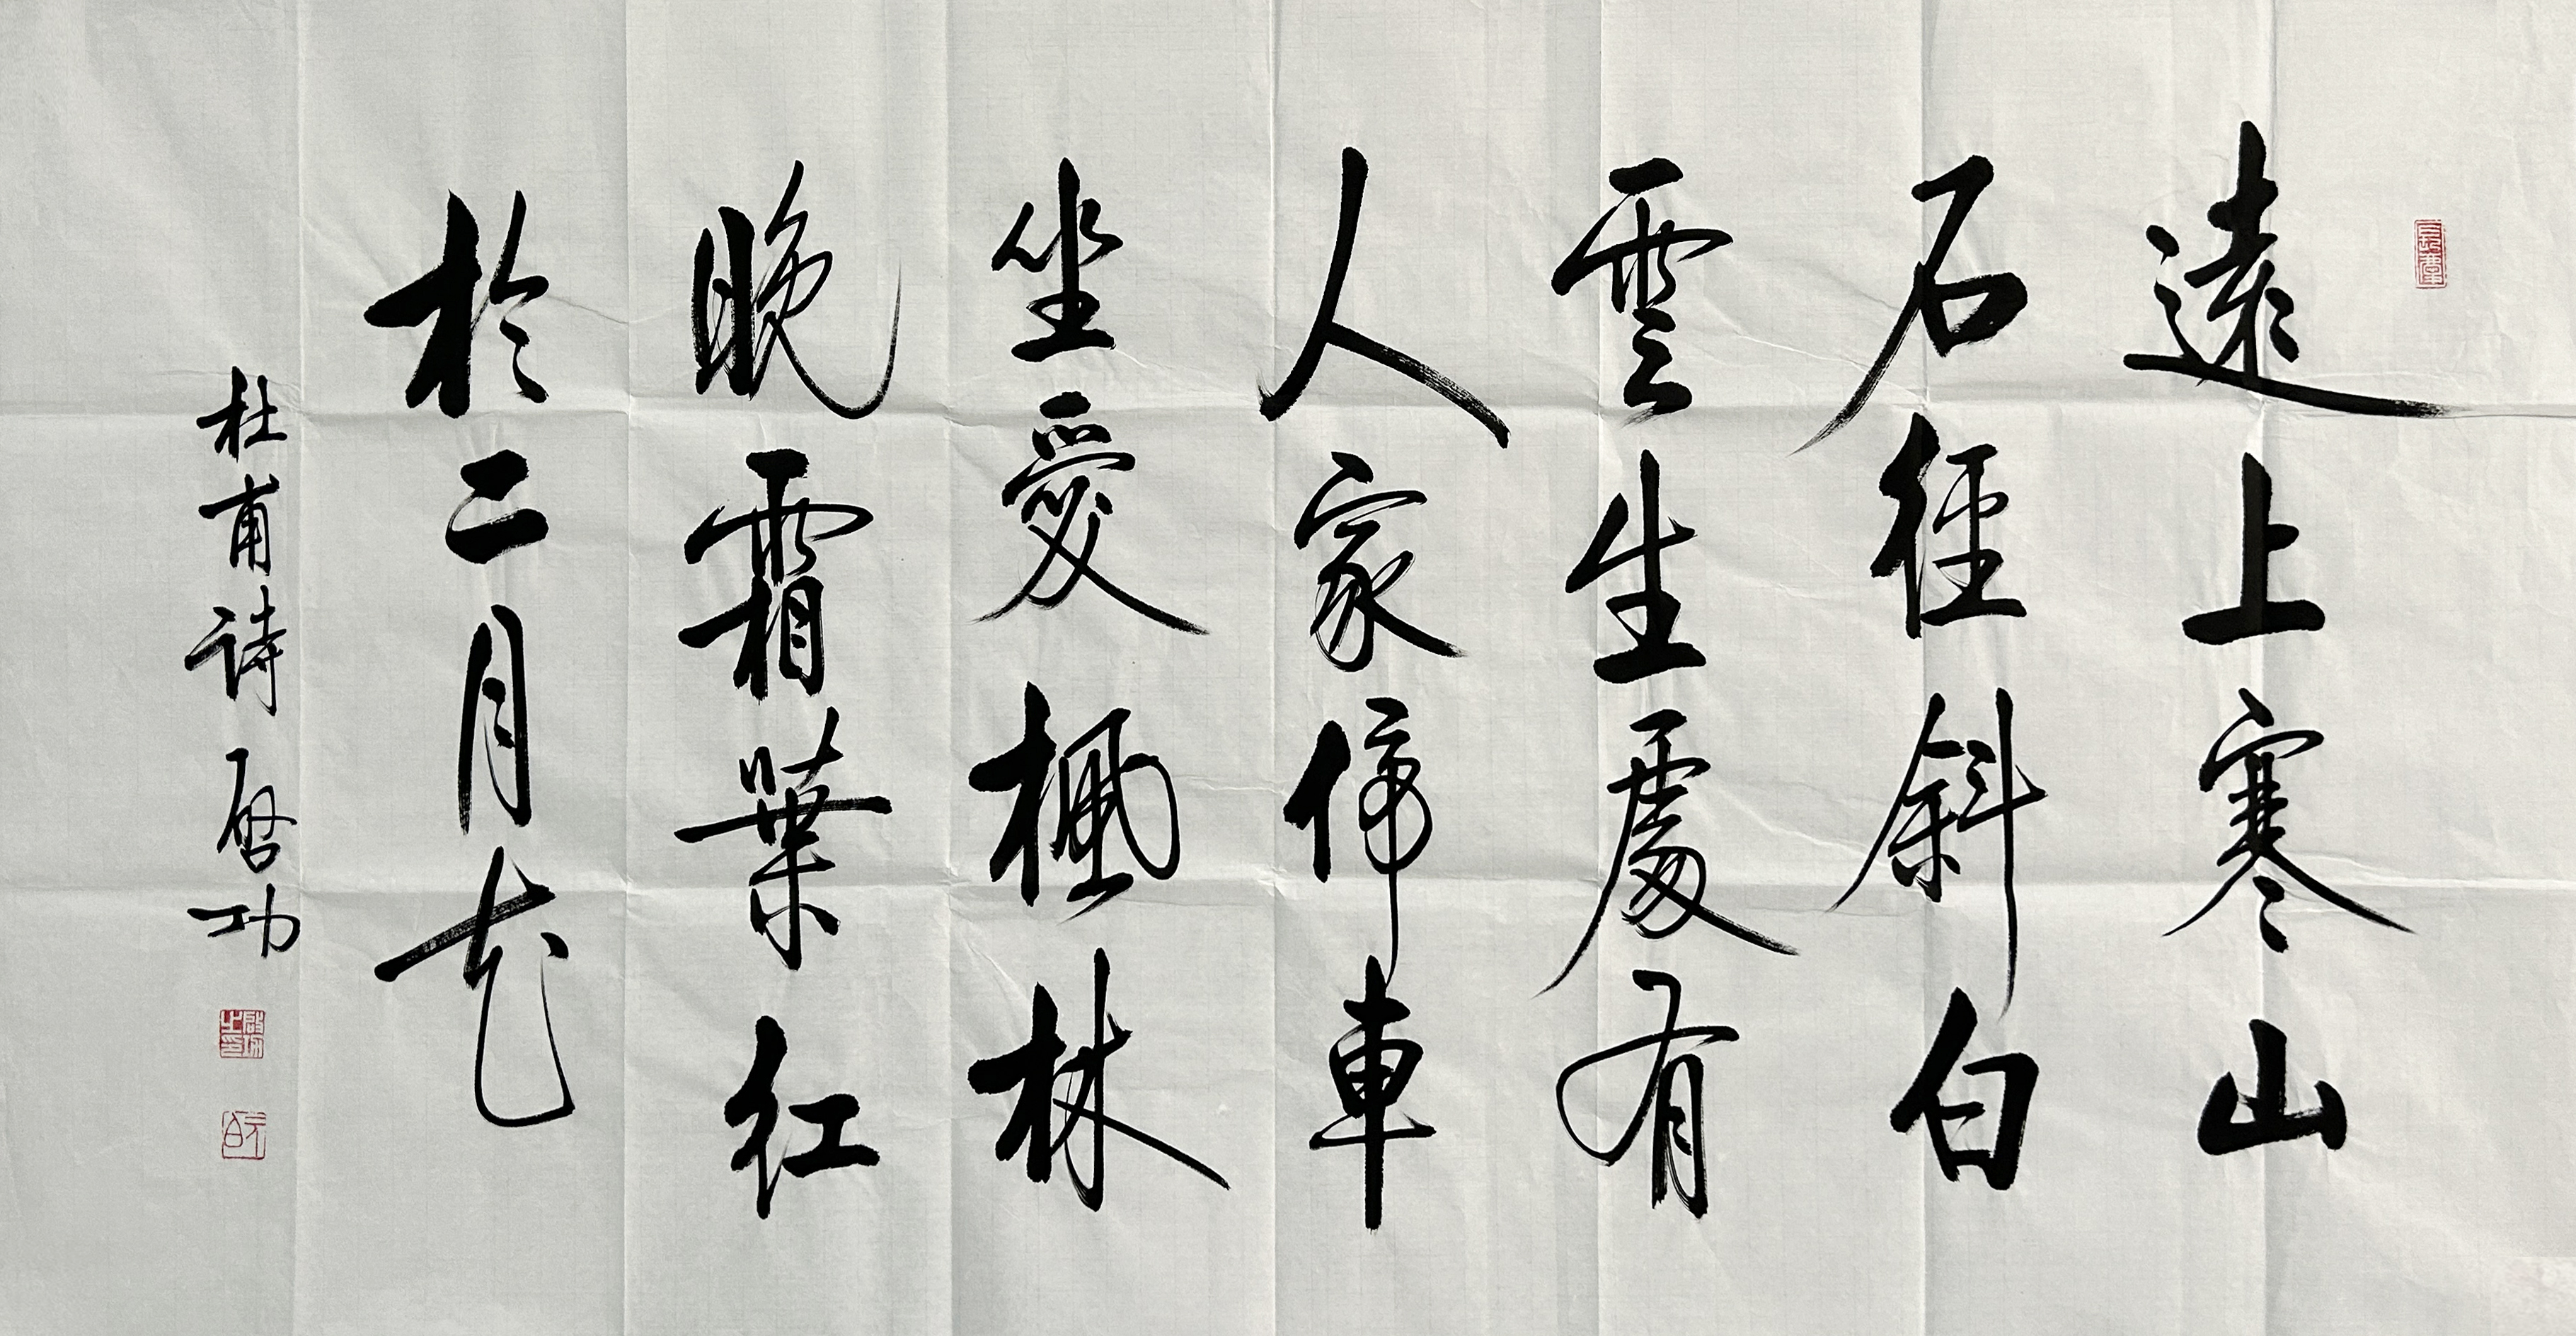 遠上寒山
石徑斜白
雲生處有
人家停車
坐愛楓林
晚霜葉紅
於二月花
杜甫诗 启功